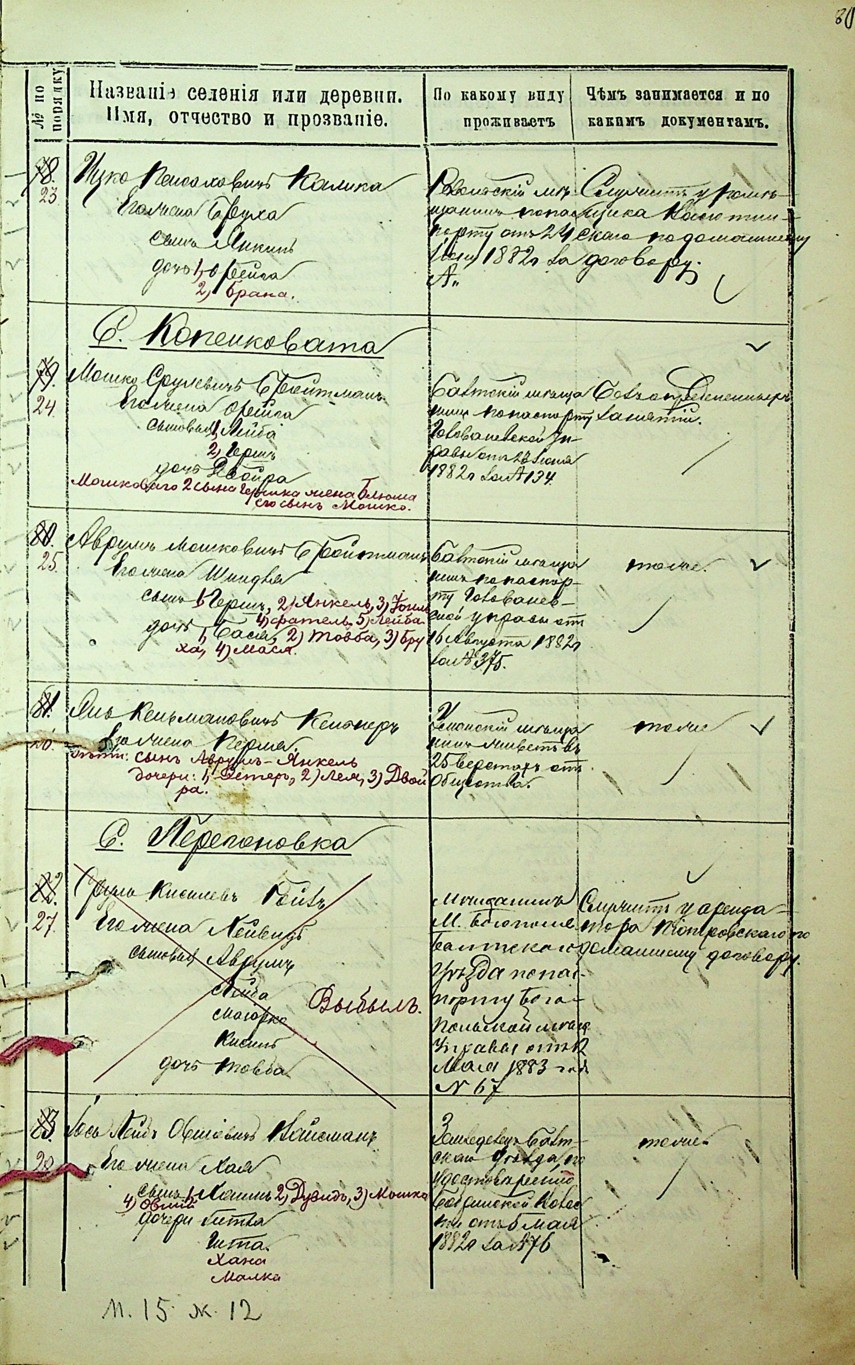 80
№ по порядку
Названіе селенія или деревни.
Имя, отчество и прозваніе.
По какому виду
проживаетъ
Чѣмъ занимается и по
какимъ документамъ.
78.
23
Ицко Калика
Его жена Бруха
сынъ Янкель
дочь 1) Фейга
2) Брана.
1882 г. за
№
Служитъ у помѣ-
щика
скаго по домашнему
договору.
С. Копенковата
79.
24.
Мошко Срулевичъ Бройтманъ
Его жена Фейга
сыновья 1) Лейба
2) Гершъ
дочь Двойра
Мошковаго 2 сына Гершка жена Блюма
его сынъ Мошко.
Балтскій мѣща
нинъ по паспорту
Голованевской Уп-
равы отъ 28 Іюня
1882 г за № 134.
Безъ опредѣленныхъ
занятій.
80.
25.
Аврумъ Мошковичъ Бройтманъ
Его жена Шиндля
сынъ 1) Гершъ, 2) Янкель, 3)
4) Фатель, 5) Лейба.
дочь 1) Бася, 2) Товба, 3) Бру
ха, 4) Мася.
Балтскій мѣща
нинъ по паспор-
ту Голованев-
ской управы отъ
16 Августа 1882 г
за № 375.
тоже.
81.
26.
Кельмановичъ Келнеръ
Его жена Перля.
Дѣти: сынъ Аврумъ-Янкель
дочери: 1) Эстеръ, 2) Лея, 3) Двой
ра.
Уманскій мѣща
нинъ живетъ въ
25 верстахъ отъ
общества.
тоже
С. Перегоновка
82.
27.
Сруль Киселевъ Гойзъ
Его жена
сыновья Аврумъ
Лейба
Мошко
Кисиль
дочь Товба
Выбылъ.
мѣщанинъ
М. Богополя
Балтскаго
Уѣзда по пас-
порту Бого-
польской мѣщ.
Управы отъ 12
Мая 1883 года
№ 67
Служитъ у аренда-
тора Піотровскаго по
домашнему договору.
83.
28.
Іось Лейбъ Овшіевичъ Вайсманъ
Его жена Хая
сынъ 1) Хаимъ 2) Дувидъ, 3) Мошка
4) Овшій
дочери Гитля
Гита.
Хана
Малка
Балт-
скаго Уѣзда, по
удостовѣренію
отъ 5 мая
1882 г за № 76
тоже.
М. 15 ж. 12